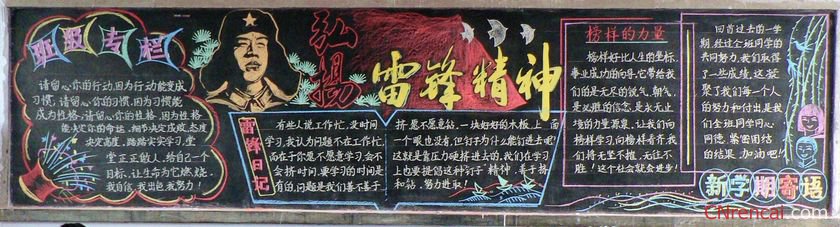 班级专栏
请留心你的行动,因为行动能变成
习惯,请留心你的习惯,因为习惯能
成为性格,请留心你的性格,因为性格
能决定你的命运,细节决定成败,态度
决定高度,踏踏实实学习,堂
堂正正做人,给自己一个
目标,让生命为它燃烧,
我自信,我出色,我努力!
弘扬
雷锋精神
雷锋日记
有些人说工作忙,没时间
学习,我认为问题不在工作忙,
而在于你愿不愿意学习,会不
会挤时间,要学习的时间是
有的,问题是我们善不善于
挤,愿不愿意钻,一块好好的木板,上面
一个眼也没有,但钉子为什么能钉进去呢?
这就是靠压力硬挤进去的,我们在学习
上也要提倡这种"钉子"精神,善于挤
和钻,努力进取!
榜样的力量
榜样好比人生的坐标,
事业成功的向导,它带给我
们的是无尽的锐气、朝气,
是必胜的信念,是永无止
境的力量源泉,让我们向
榜样学习,向榜样看齐,我
们将无坚不摧,无往不
胜!这个社会就会进步!
回首过去的一学
期,经过全班同学的
共同努力,我们取得
了一些成绩,这凝
聚了我们每一个人
的努力和付出,是我
们全班同学同心
同德,紧密团结
的结果,加油吧!
新学期寄语
CNrencai.com